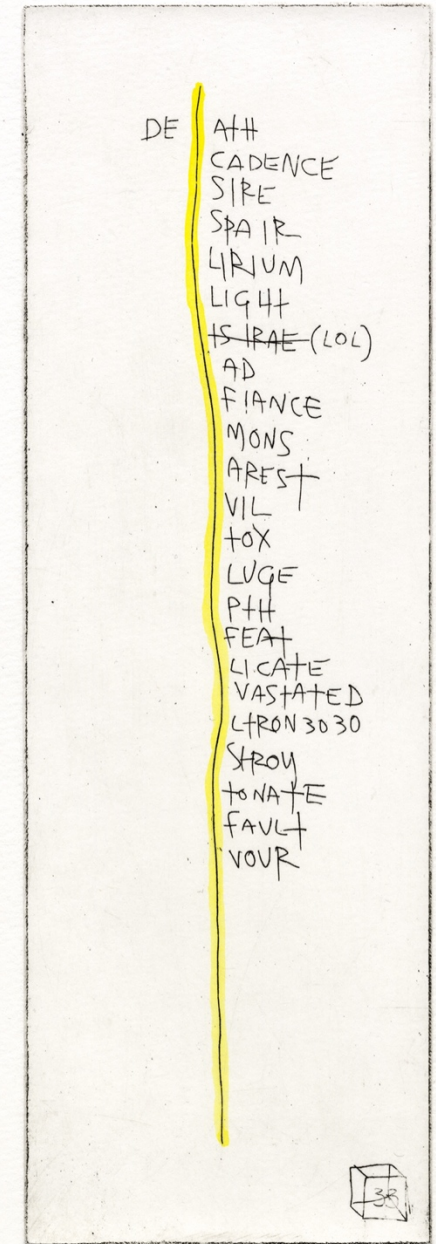 DE ATH
CADENCE
SIRE
SPAIR
LIRIUM
LIGHT
IS IRAE (LOL)
AD
FIANCE
MONS
AREST
VIL
TOX
LUGE
PTH
FEAT
LICATE
VASTATED
LTRON 3030
STROY
TONATE
FAULT
VOUR
33